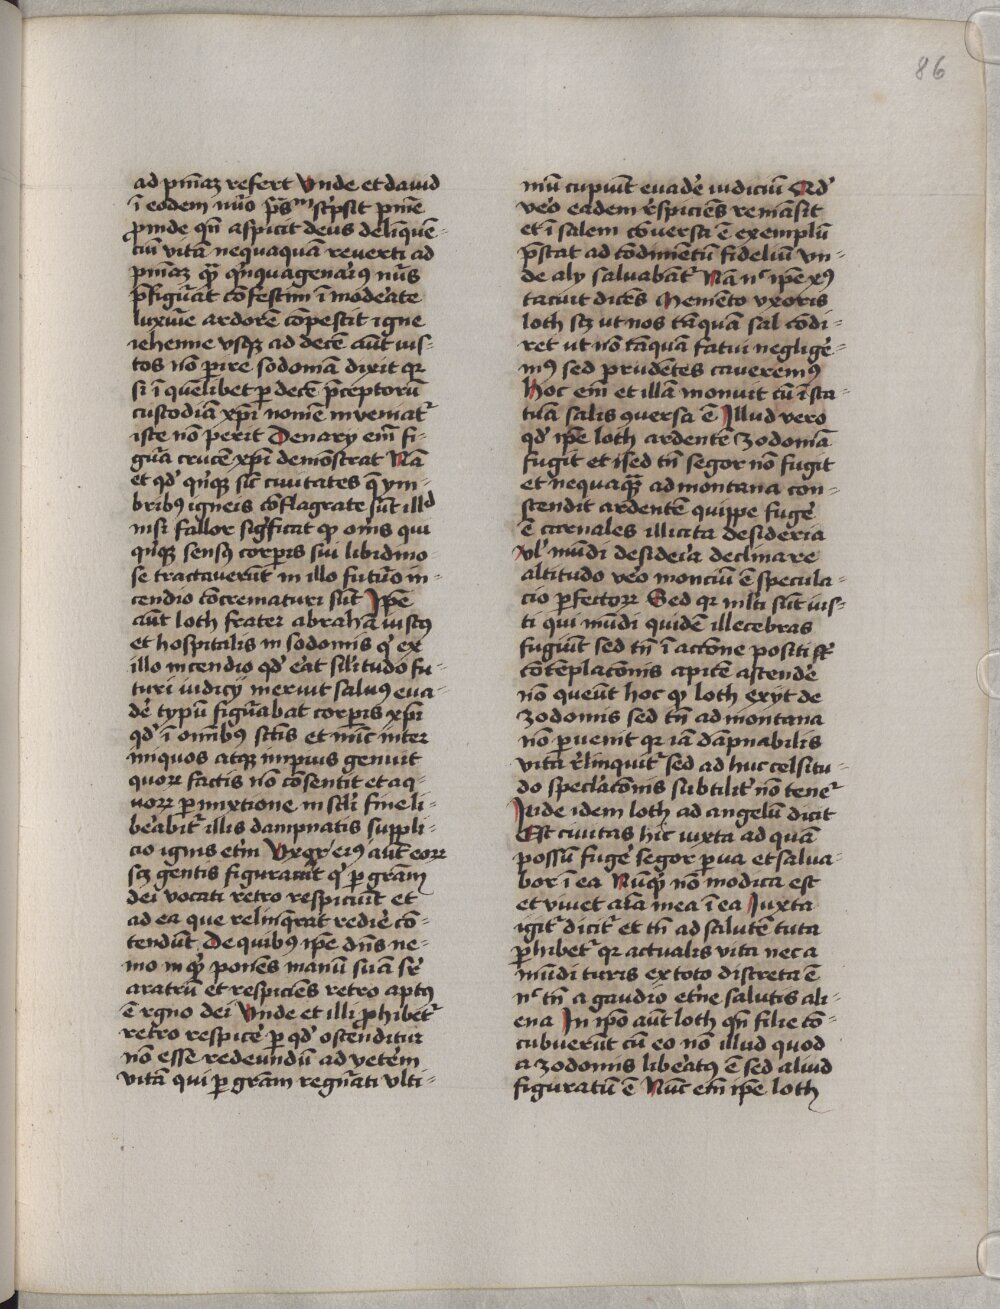 86
ad pnīaꝫ refert Vnde et dauid
ī eodem nūo pscripsit pnīe
ꝓinde qn̄ aspicit deus delinquē-
ciū vitā nequaquā reuerti ad
pnīaꝫ qr̄ qnquagenariꝰ nūs
p̄figurat cōfestim īmoderate
luxurie ardorē cōpescit igne
iehenne vsqꝫ ad decē aūt ius-
tos nō ꝑire sodomā dixit qr
si ī quelibet ꝑ decē p̄ceptorū
custodiā xp̄i nomē inueniat᷑
iste nō perit Denarij em̄ fi-
gura crucē xp̄i demōstrat Nā
et qd̓ qnqꝫ sūt ciuitates q̄ ym-
bribꝰ igneis cōflagrate sūt illd
nisi fallor sigficat ꝙ om̄s qui
qnqꝫ sensꝰ corpis sui libidino-
se tractauerūt in illo futuro in-
cendio cōcrematuri sūt Ip̄e
aūt loth frater abrahā iustꝰ
et hospitalis in sodomis q̓ ex
illo incendio qd̓ erat sīlitudo fu-
turi iudicij meruit saluus eua-
de᷑ typū figurabat corpis xp̄i
qd̓ ī omībꝰ sctīs et nūc inter
iniquos atqꝫ impios gemit
quoꝝ factis nō cōsentit et a q-
uoꝝ ꝑmixtione in scl̓i fine li-
berabit᷑ illis dampnatis suppli-
cio ignis et̓ni Vxor eiꝰ aūt eoꝝ
scꝫ gentis figurauit q̓ ꝑ grām
dei vocati retro respiciūt et
ad ea que relinquerāt redire cō-
tendūt De quibꝰ ip̄e dn̄s ne-
mo inq̓ ponēs manū suā sr̄
aratrū et respiciēs retro aptꝰ
ē rgno dei Vnde et illi ꝓhibet᷑
retro respice᷑ ꝑ qd̓ ostenditur
nō esse redeundū ad veterem
vitā qui ꝑ grām regn̄ati vlti-
mū cupiūt euade᷑ iudiciū Qd̓
vero eadem respiciēs remāsit
et ī salem cōuersa ē exemplū
p̄stat ad cōdimētū fideliū vn-
de alij saluabāt᷑ Nā nc ip̄e xꝰ
tacuit dicēs Memēto vxoris
loth scꝫ ut nos tāquā sal cōdi-
ret ut nō tāquā fatui neglige᷑-
mꝰ sed prudētes caueremꝰ
Hoc em̄ et illā monuit cū ī sta-
tuā salis quersa ē Illud vero
qd̓ ip̄e loth ardentē zodomā
fugit et ised tn̄ segor nō fugit
et nequaquā ad montana con-
scendit ardentē quippe fuge᷑
ē carnales illicita desideria
vl̓ mūdi desideria declinare
altitudo vero monciū ē specula-
cio ꝑfectoꝝ Sed qr mlti sūt ius-
ti qui mūdi quidē illecebras
fugiūt sed tn̄ ī actōne positi
cōtēplacōnis apicē ascende᷑
nō queūt hoc ꝙ loth exijt de
zodomis sed tn̄ ad montana
nō ꝑuenit qr iā dāpnabilis
vita relinquit᷑ sed ad huc celsitu-
do speclacōnis subtilit᷑ nō tenet᷑
Inde idem loth ad angelū dicit
Est ciuitas hic iuxta ad quā
possū fuge᷑ segor ꝑua et salua-
bor ī ea Nūqd̓ nō modica est
et viuet aīa mea ī ea Iuxta
igit᷑ dicit᷑ et tn̄ ad salutē tuta
ꝑhibet᷑ qr actualis vita nec a
mūdi curis ex toto discreta ē
nc tn̄ a gaudio et̓ne salutis ali-
ena In ip̄o aūt loth qn̄ filie cō-
cubuerūt cū eo nō illud quod
a zodomis liberatꝰ ē sed aliud
figuratū ē Nūc em̄ ip̄e loth